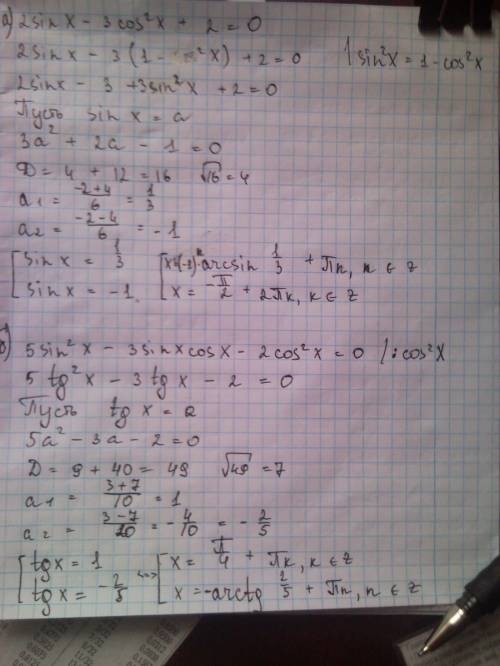 а) 2sin x - 3cos²x + 2 = 0
2sin x - 3(1 - ²x) + 2 = 0 / sin²x = 1 - cos²x
2sin x - 3 + 3sin²x + 2 = 0
Пусть sin x = a
3a² + 2a - 1 = 0
D = 4 + 12 = 16 √16 = 4
a₁ = (-2+4)/6 = 1/3
a₂ = (-2-4)/6 = -1
[ sin x = 1/3 [ x = (-1)ⁿ arcsin 1/3 + Пn, n ∈ z
[ sin x = -1. [ x = -П/2 + 2Пk, k ∈ z
б) 5sin²x - 3sin x cos x - 2cos²x = 0 /: cos²x
5tg²x - 3tg x - 2 = 0
Пусть tg x = a
5a² - 3a - 2 = 0
D = 9 + 40 = 49 √49 = 7
a₁ = (3+7)/10 = 1
a₂ = (3-7)/10 = -4/10 = -2/5
[ tg x = 1 <=> [ x = П/4 + Пk, k ∈ z
[ tg x = -2/5 [ x = -arctg 2/5 + Пn, n ∈ z